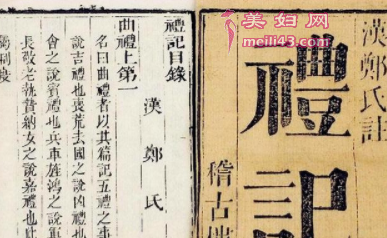 美妇网
meili43.com
漢鄭氏註
禮記
稽古
禮記目錄
漢鄭氏
曲禮上第一
名曰曲禮者以其篇記五禮之事
說吉禮也喪荒去國之說凶禮也
會之說賓禮也兵車旌鴻之說軍
長敬老執贄納女之說嘉禮也此